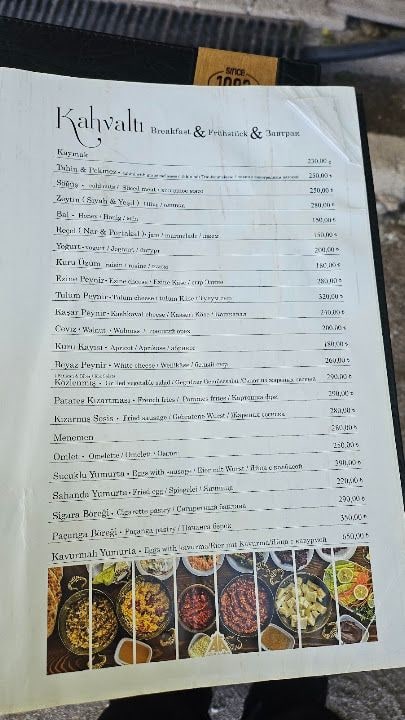 SINCE
Kahvaltı Breakfast & Frühstück & Завтрак
Kaymak 230,00 ₺
Tahin & Pekmez 250,00 ₺
Söğüş - cold cuts / Sliced meat / 250,00 ₺
Zeytin ( Siyah & Yeşil ) Olive / 280,00 ₺
Bal - Honey / Honig / мёд 150,00 ₺
Reçel ( Nar & Portakal ) - jam / marmelade / джем 150,00 ₺
Yogurt - yogurt / Joghurt / йогурт 200,00 ₺
Kuru Üzüm raisin / rosine / изюм 180,00 ₺
Ezine Peynir - Ezine cheese / Ezine Käse / сыр Эзине 280,00 ₺
Tulum Peynir - Tulum cheese / tulum Käse / Тулум сыр 320,00 ₺
Kaşar Peynir - Kashkaval cheese / Kaşeri Käse / 240,00 ₺
Ceviz - Walnut / Walnuss / грецкий орех 200,00 ₺
Kuru Kayısı - Apricot / Aprikose / абрикос 180,00 ₺
Beyaz Peynir - White cheese / Weißkäse / белый сыр 260,00 ₺
Közlenmiş - Grilled vegetable salad / Gegrillter Gemüsesalat / Салат из жареных овощей 290,00 ₺
Patates Kızartması - French fries / Pommes frites / Картошка фри 290,00 ₺
Kızarmış Sosis - Fried sausage / Gebratene Wurst / Жареная сосиска 280,00 ₺
Menemen 280,00 ₺
Omlet - Omelette / Omelett / Омлет 250,00 ₺
Sucuklu Yumurta - Eggs with / Eier mit Wurst / Яйца с колбасой 390,00 ₺
Sahanda Yumurta - Fried egg / Spiegelei / Яичница 220,00 ₺
Sigara Böreği - Cigarette pastry / 290,00 ₺
Paçanga Böreği - Paçanga pastry / Пачанга бёрек 350,00 ₺
Kavurmalı Yumurta - Eggs with kavurma / Eier mit Kavurma / Яйца с кавурмой 650,00 ₺